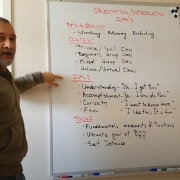 ORIENTATION/INTRODUCTION
GOALS
BACKGROUND
CONTEXT
- Private/Ind. Class
- Beginners Group Class
- Mixed Group Class
- Online/Virtual Class
GOALS
- Understanding- "Oh, I get this"
- Accomplishment- "Oh, I can do this"
- Curiosity - "I want to know more"
- Fun - "I like this. It is fun"
TOOLS
- Fundamental movements & Positions
- Ultimate goal of BJJ
- Self Defense